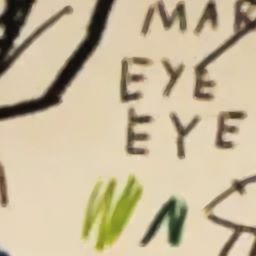 MAR
EYE
EYE
W N